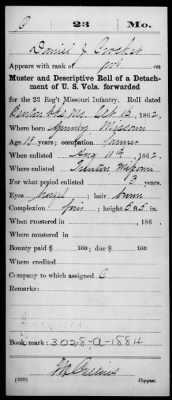 C 23 Mo.
Daniel J. Crocket
Appears with rank of Pvt on
Muster and Descriptive Roll of a Detachment
of U. S. Vols. forwarded
for the 23 Reg't Missouri Infantry. Roll dated
Benton Bks Mo. Oct 15, 1862.
Where born Missouri
Age 18 years; occupation Farmer
When enlisted Aug 11, 1862.
Where enlisted Missouri
For what period enlisted 3 years.
Eyes ; hair
Complexion fair; height 5 ft. 5 in.
When mustered in , 186 .
Where mustered in
Bounty paid $ 100; due $ 100
Where credited
Company to which assigned C
Remarks:
Book mark: 3028-A-1884
(339) Copyist.